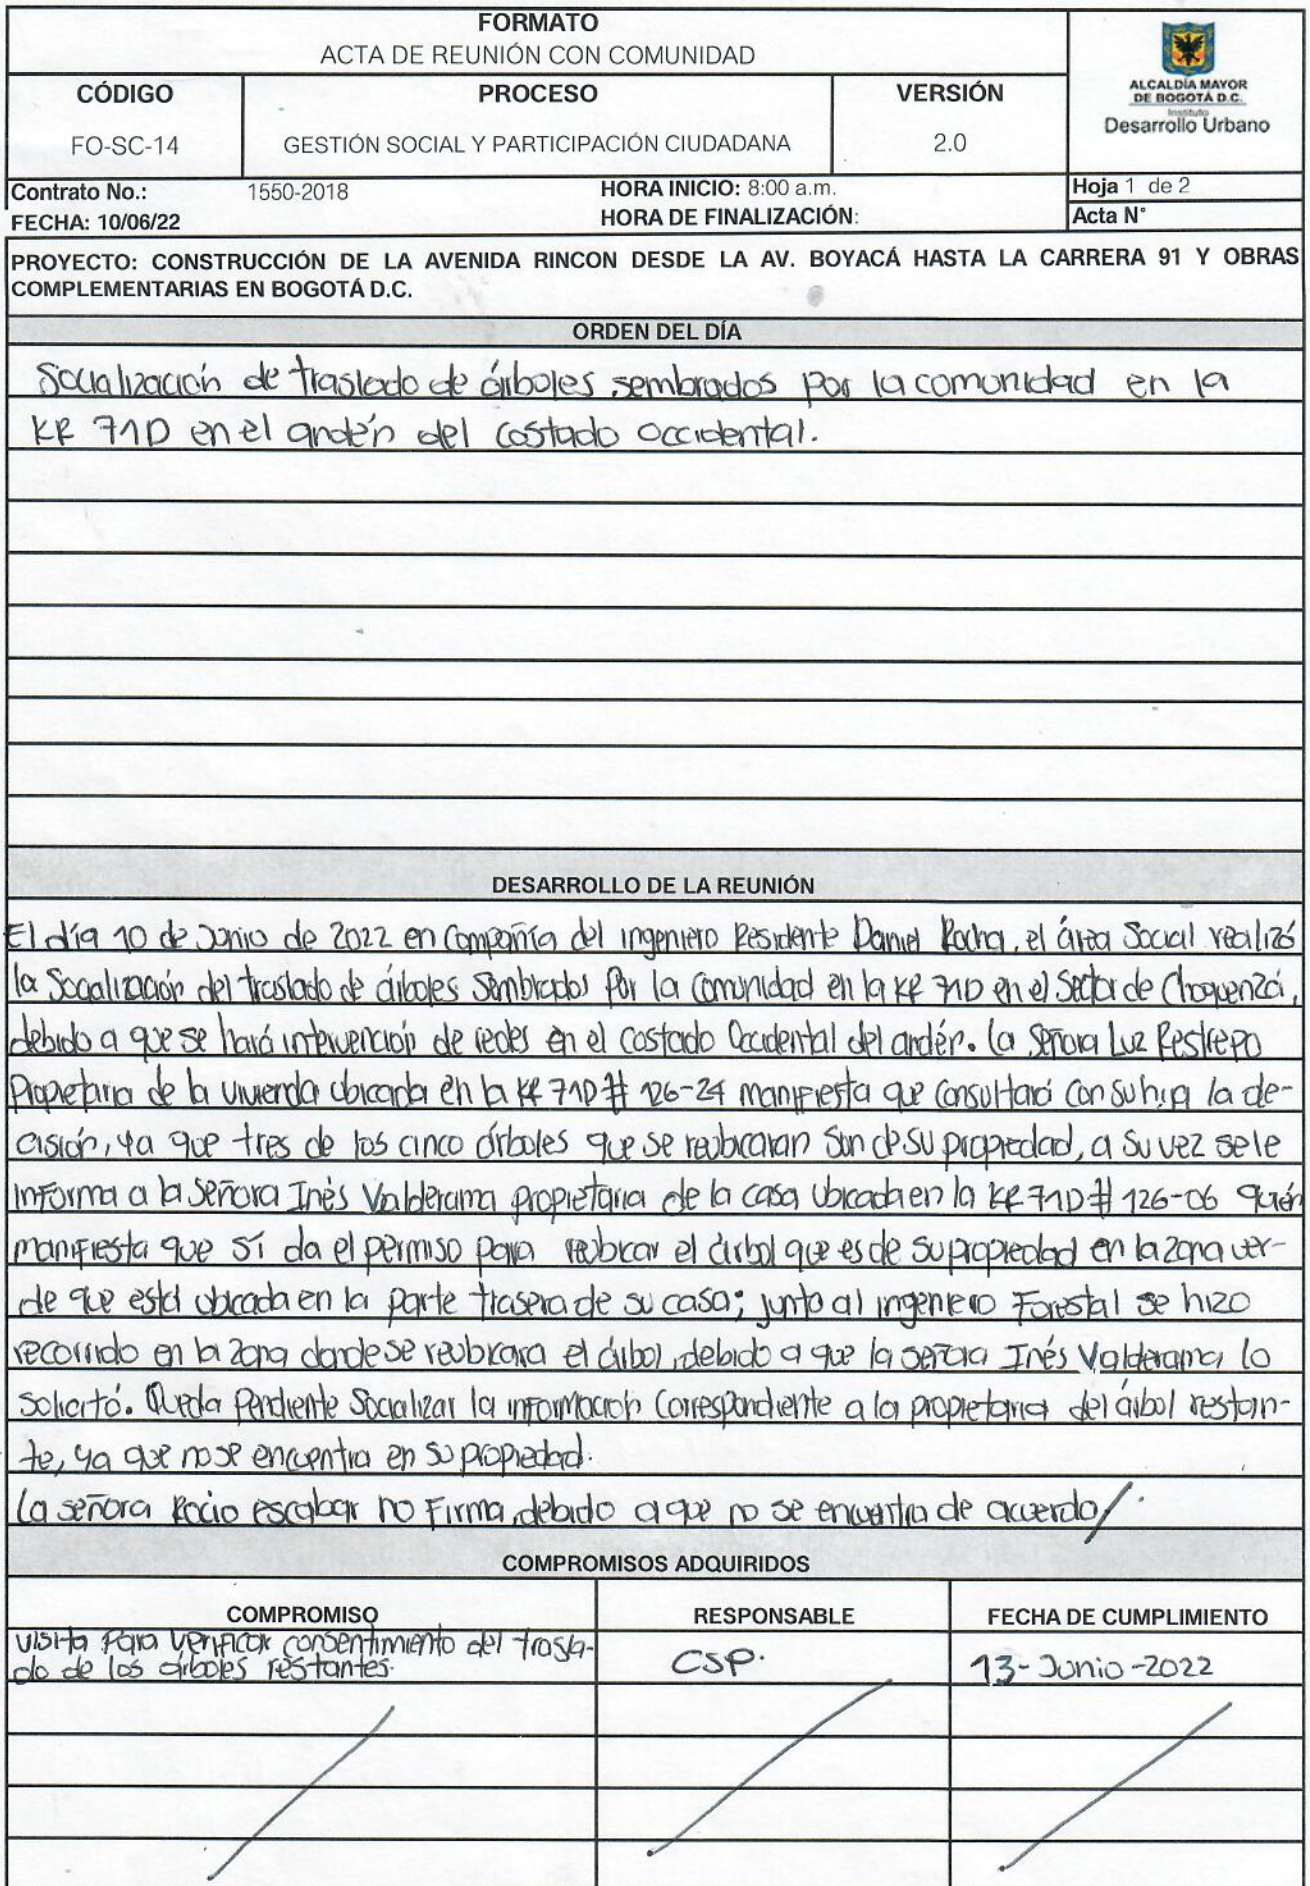 FORMATO
ACTA DE REUNIÓN CON COMUNIDAD
CÓDIGO
PROCESO
VERSIÓN
FO-SC-14
GESTIÓN SOCIAL Y PARTICIPACIÓN CIUDADANA
2.0
ALCALDÍA MAYOR
DE BOGOTÁ D.C.
Instituto
Desarrollo Urbano
Contrato No.: 1550-2018
HORA INICIO: 8:00 a.m.
Hoja 1 de 2
FECHA: 10/06/22
HORA DE FINALIZACIÓN:
Acta N°
PROYECTO: CONSTRUCCIÓN DE LA AVENIDA RINCON DESDE LA AV. BOYACÁ HASTA LA CARRERA 91 Y OBRAS
COMPLEMENTARIAS EN BOGOTÁ D.C.
ORDEN DEL DÍA
Socialización de traslado de árboles sembrados por la comunidad en la
KR 71D en el andén del costado occidental.
DESARROLLO DE LA REUNIÓN
El día 10 de Junio de 2022 en Compañía del ingeniero Residente Daniel Rocha, el área Social realizó
la Socialización del traslado de árboles Sembrados Por la comunidad en la KR 71D en el Sector de Choquenzá,
debido a que se hará intervención de redes en el costado Occidental del andén. La Señora Luz Restrepo
Propietaria de la vivienda ubicada en la KR 71D # 126-24 manifiesta que consultará con su hija la de-
cisión, ya que tres de los cinco árboles que se reubicaran son de su propiedad, a su vez se le
informa a la señora Inés Valderama propietaria de la casa ubicada en la KR 71D # 126-06 quién
manifiesta que sí da el permiso para reubicar el árbol que es de su propiedad en la zona ver-
de que está ubicada en la parte trasera de su casa; junto al ingeniero Forestal se hizo
recorrido en la zona donde se reubicara el árbol, debido a que la señora Inés Valderama lo
solicitó. Queda Pendiente Socializar la información Correspondiente a la propietaria del árbol restan-
te, ya que no se encuentra en su propiedad.
La señora Rocio escobar no Firma, debido a que no se encuentra de acuerdo/.
COMPROMISOS ADQUIRIDOS
COMPROMISO
RESPONSABLE
FECHA DE CUMPLIMIENTO
visita Para Verificar consentimiento del trasla-
do de los árboles restantes.
CSP.
13-Junio-2022